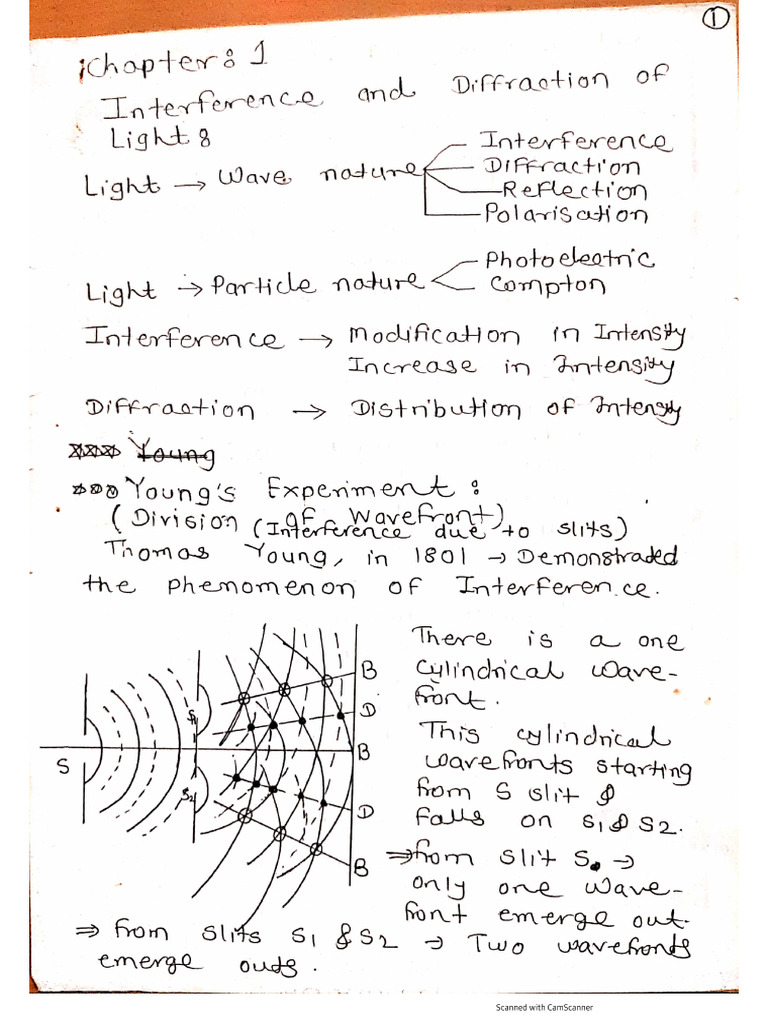 1
Chapter: 1
Interference and Diffraction of
Light:
Light → Wave nature
Interference
Diffraction
Reflection
Polarisation
Light → Particle nature
Photoelectric
Compton
Interference → Modification in Intensity
Increase in Intensity
Diffraction → Distribution of Intensity
Young
Young's Experiment:
(Division of Wavefront)
(Interference due to slits)
Thomas Young, in 1801 → Demonstraded
the phenomenon of Interference.
There is a one
cylindrical wave-
front.
This cylindrical
wavefronts starting
from S slit &
falls on S1 & S2.
⇒ from slit S. →
only one wave-
front emerge out.
S
S1
S2
B
D
B
D
B
⇒ from slits S1 & S2 → Two wavefronts
emerge outs.
Scanned with CamScanner